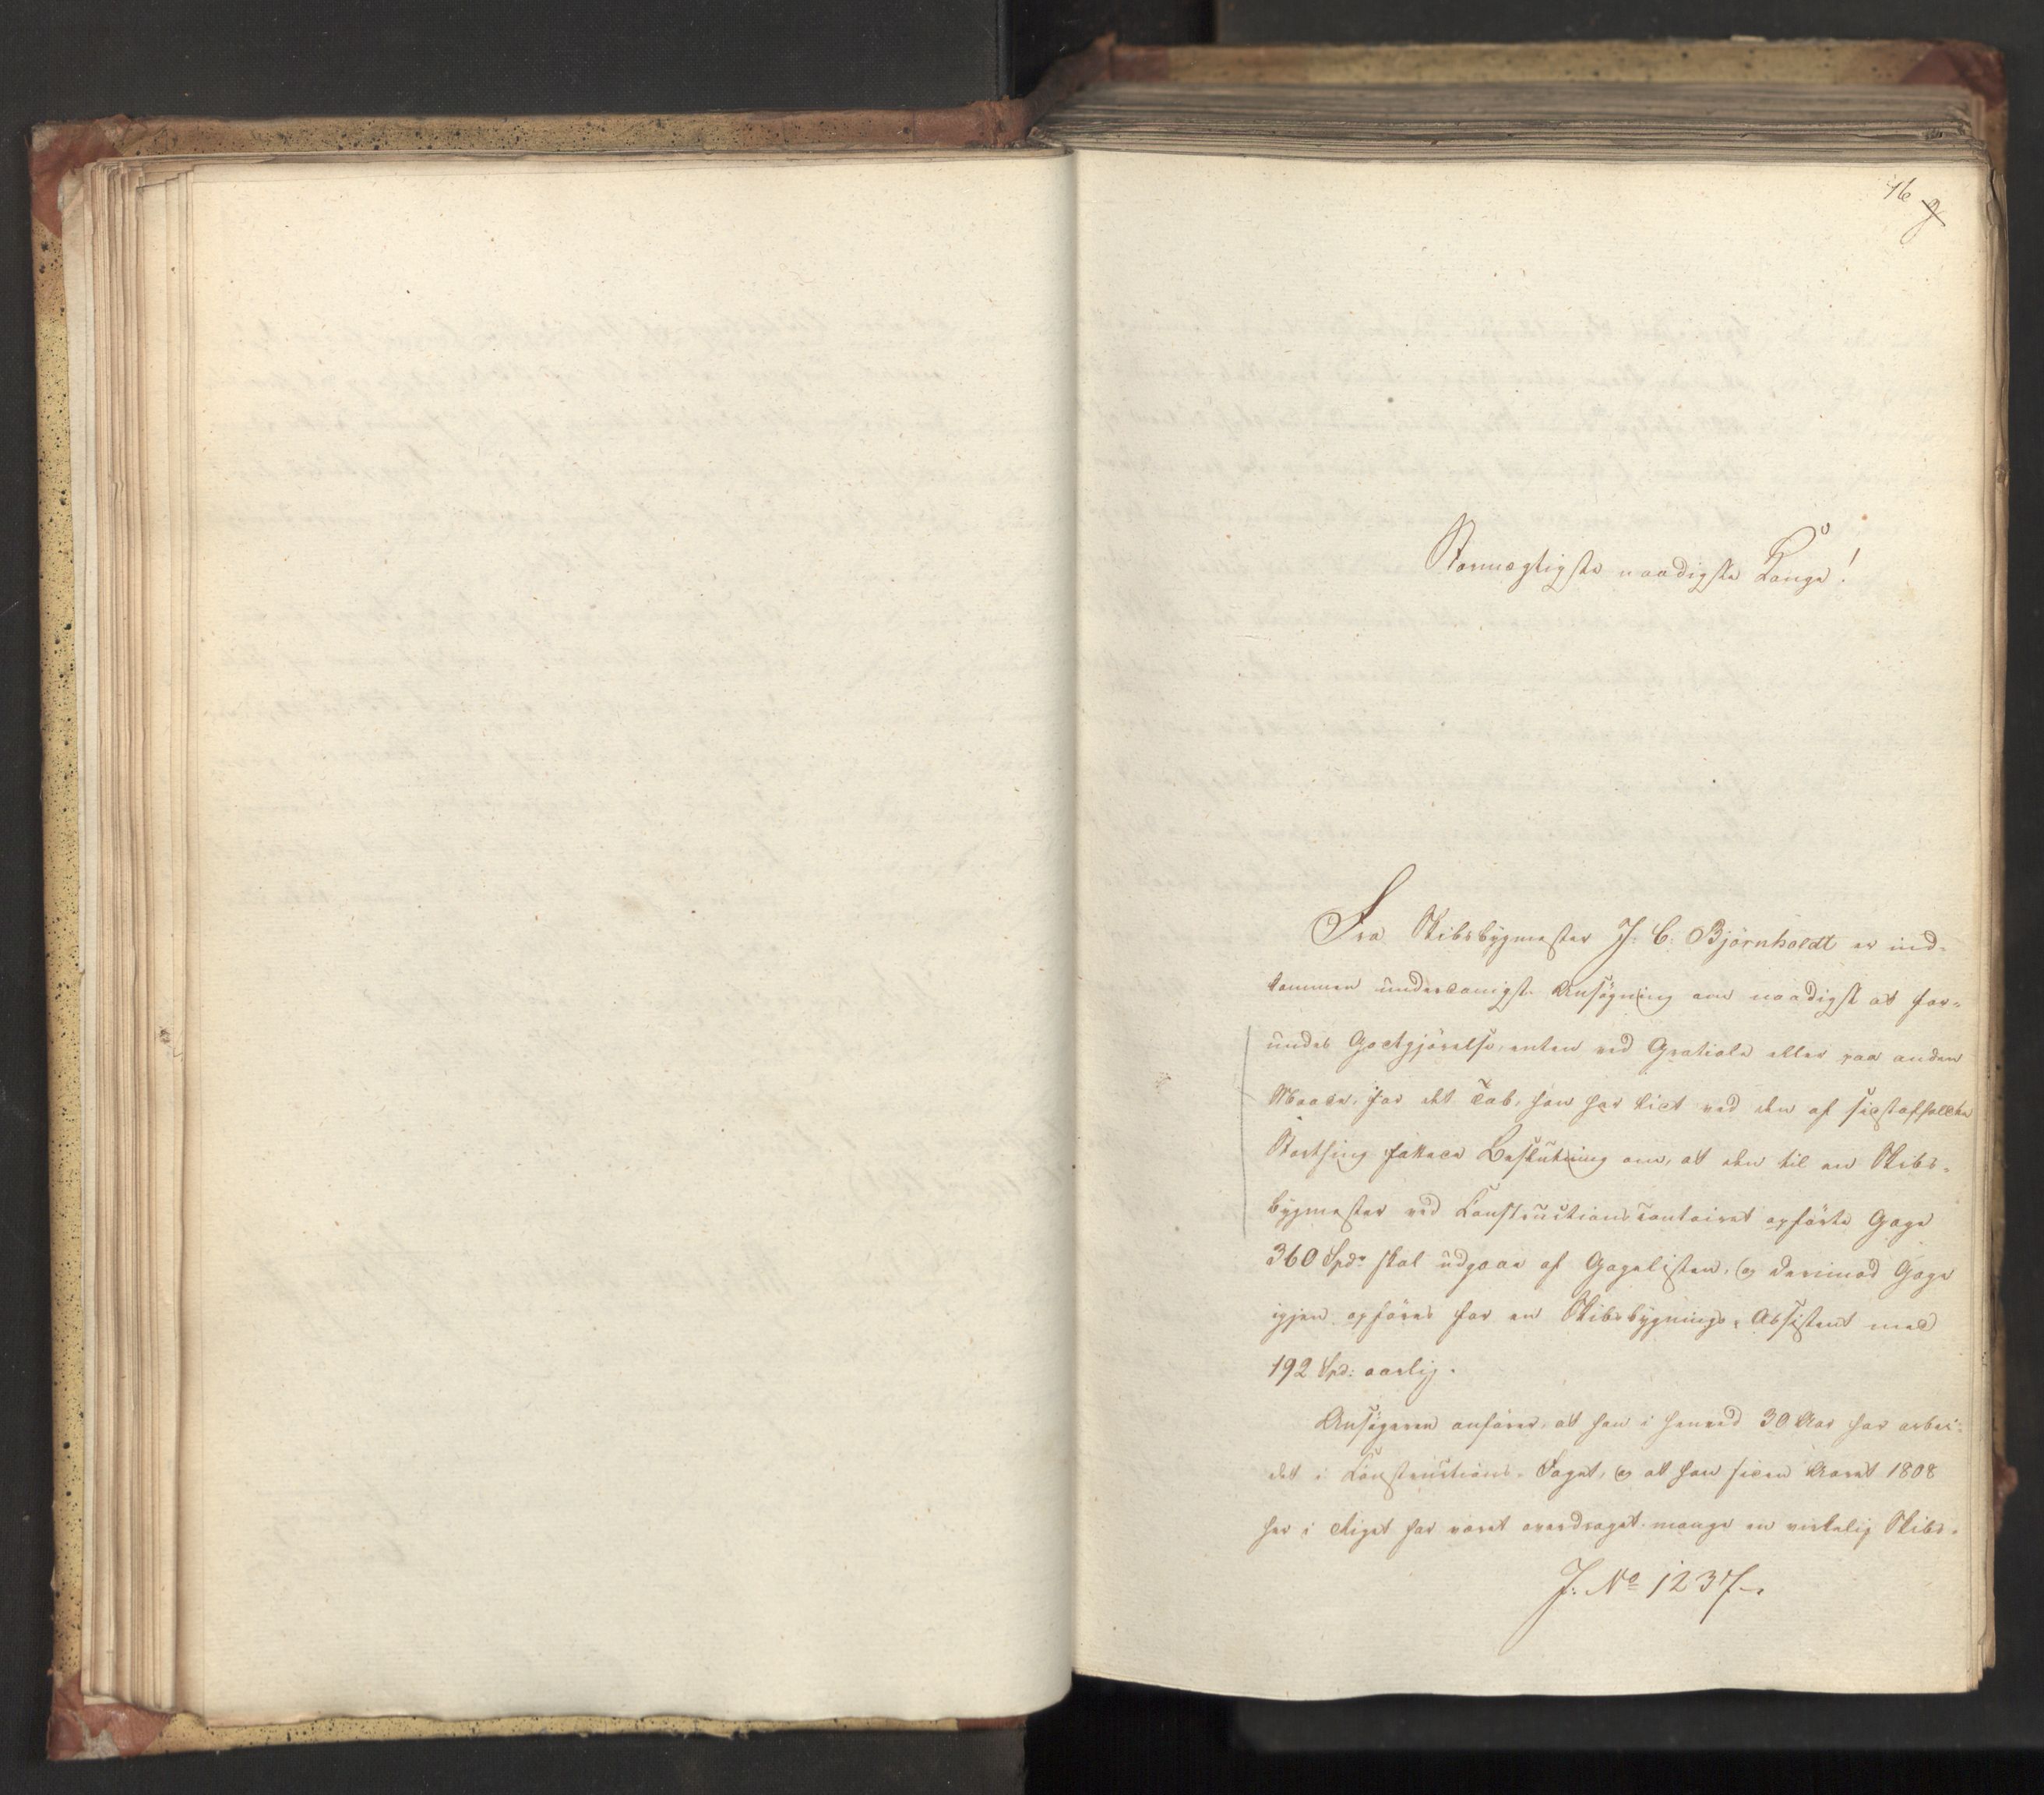 16 g
Stormægtigste naadigste Konge!
Fra Skibsbygmester J: C: Björnholdt er ind-
kommen underdanigst Ansögning om naadigst at for-
undes Godtgjörelse, enten ved Gratiale eller paa anden
Maade, for det Tab, han har lidt ved den af sidstafholdte
Storthing fattede Beslutning om, at den til en Skibs-
bygmester ved Constructionscontoiret opförte Gage
360 Spdr skal udgaae af Gagelisten, og derimod Gage
igjen opföres for en Skibsbygnings-Assistent med
192 Spd: aarlig.
Ansögeren anförer, at han i henved 30 Aar har arbei-
det i Constructions-Faget, og at han siden Aaret 1808
her i Riget har været overdraget mange en virkelig Skibs-
J: No 1237-.